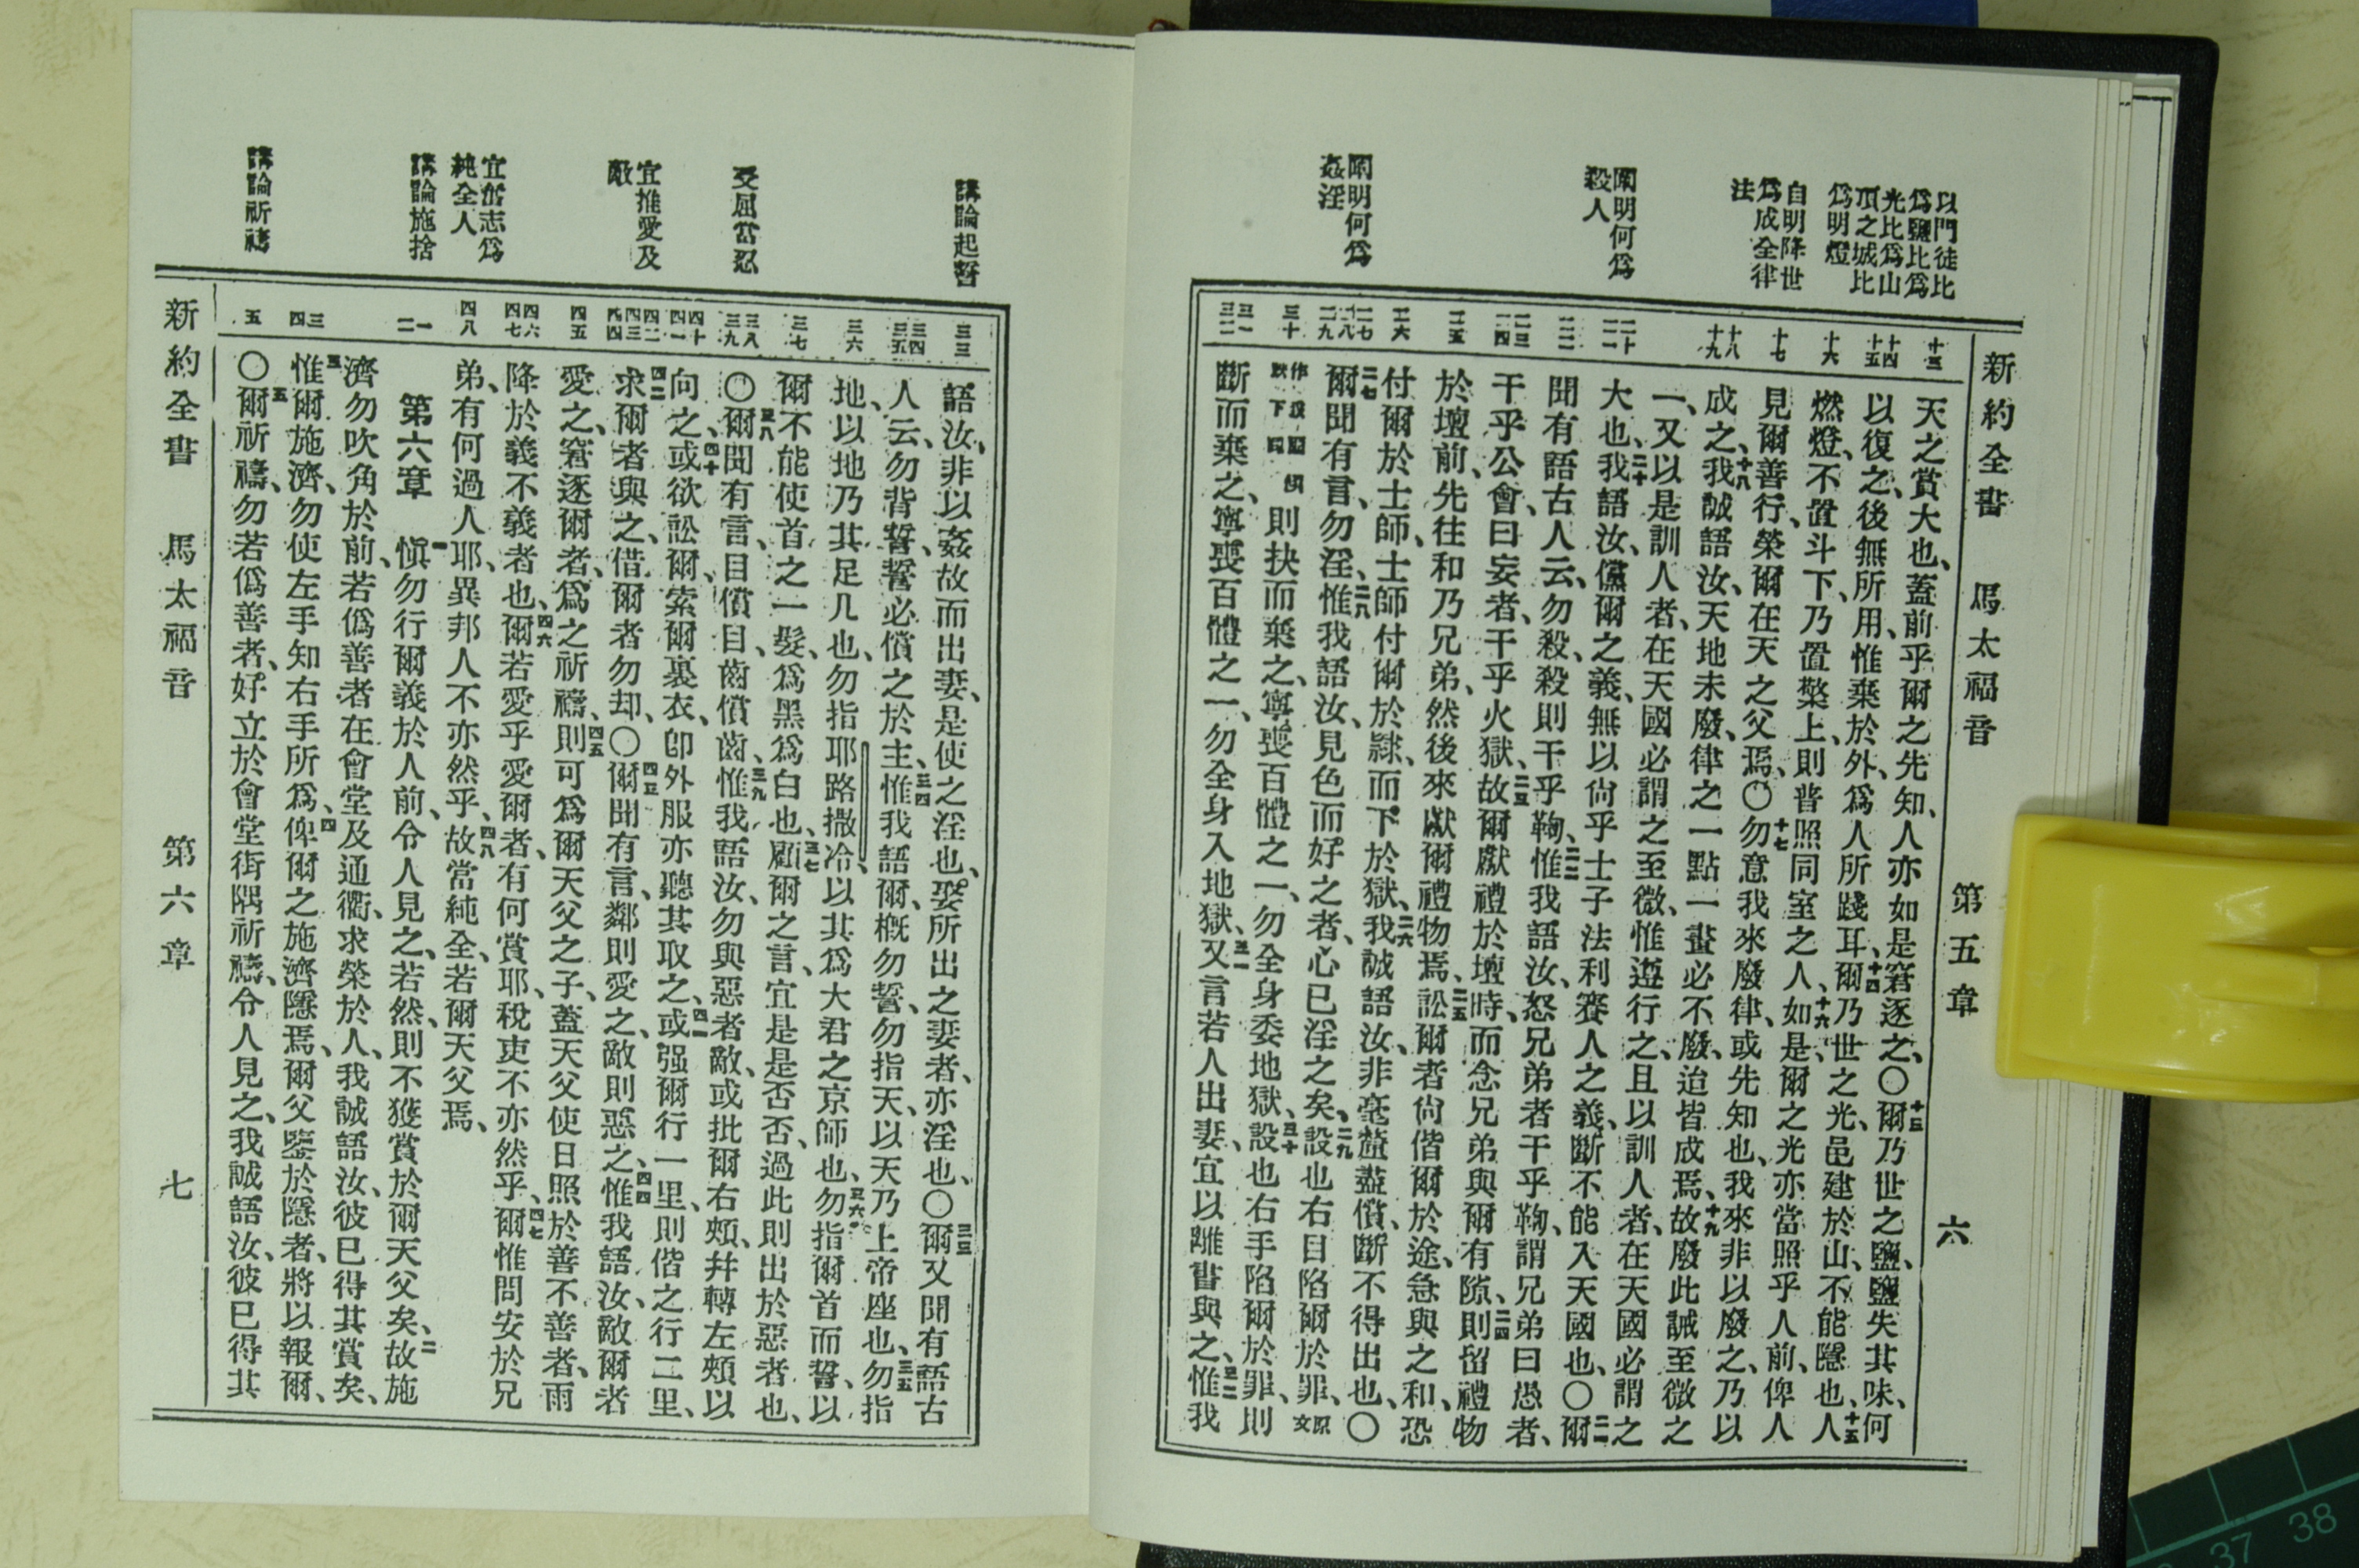 新約全書 馬太福音 第五章 六
以門徒比
爲鹽比爲
光比爲山
頂之城比
爲明燈
自明降世
爲成全律
法
闡明何爲
殺人
闡明何爲
姦淫
十三
十四
十五
十六
十七
十八
十九
二十
二一
二二
二三
二四
二五
二六
二七
二八
二九
三十
三一
三二
天之賞大也、蓋前乎爾之先知、人亦如是窘逐之、〇十三爾乃世之鹽、鹽失其味、何
以復之、後無所用、惟棄於外、爲人所踐耳、十四爾乃世之光、邑建於山、不能隱也、十五人
燃燈、不置斗下、乃置檠上、則普照同室之人、十六如是、爾之光亦當照乎人前、俾人
見爾善行、榮爾在天之父焉、〇十七勿意我來廢律、或先知也、我來非以廢之、乃以
成之、十八我誠語汝、天地未廢、律之一點一畫必不廢、迨皆成焉、十九故廢此誡至微之
一、又以是訓人者、在天國必謂之至微、惟遵行之、且以訓人者、在天國必謂之
大也、二十我語汝、儻爾之義、無以尙乎士子法利賽人之義、斷不能入天國也、〇二一爾
聞有語古人云、勿殺、殺則干乎鞫、二二惟我語汝、怒兄弟者干乎鞫、謂兄弟曰愚者、
干乎公會、曰妄者、干乎火獄、二三故爾獻禮於壇時、而念兄弟與爾有隙、二四則留禮物
於壇前、先往和乃兄弟、然後來獻爾禮物焉、二五訟爾者尙偕爾於途、急與之和、恐
付爾於士師、士師付爾於隸、而下於獄、二六我誠語汝、非毫釐盡償、斷不得出也、〇
二七爾聞有言、勿淫、二八惟我語汝、見色而好之者、心已淫之矣、二九設也右目陷爾於罪、原文
作設 下同 則抉而棄之、寧喪百體之一、勿全身委地獄、三十設也右手陷爾於罪、則
斷而棄之、寧喪百體之一、勿全身入地獄、三一又言若人出妻、宜以離書與之、三二惟我
講論起誓
受屈當忍
宜推愛及
敵
宜奮志爲
純全人
講論施捨
講論祈禱
三三
三四
三五
三六
三七
三八
三九
四十
四一
四二
四三
四四
四五
四六
四七
四八
一
二
三
四
五
語汝、非以姦故而出妻、是使之淫也、娶所出之妻者、亦淫也、〇三三爾又聞有語古
人云、勿背誓、誓必償之於主、三四惟我語爾、概勿誓、勿指天、以天乃上帝座也、三五勿指
地、以地乃其足几也、勿指耶路撒冷、以其爲大君之京師也、三六勿指爾首而誓、以
爾不能使首之一髮、爲黑爲白也、三七顧爾之言、宜是是否否、過此則出於惡者也、
〇三八爾聞有言、目償目、齒償齒、三九惟我語汝、勿與惡者敵、或批爾右頰、幷轉左頰以
向之、四十或欲訟爾、索爾裏衣、卽外服亦聽其取之、四一或强爾行一里、則偕之行二里、
四二求爾者與之、借爾者勿却、〇四三爾聞有言、鄰則愛之、敵則惡之、四四惟我語汝、敵爾者
愛之、窘逐爾者、爲之祈禱、四五則可爲爾天父之子、蓋天父使日照於善不善者、雨
降於義不義者也、四六爾若愛乎愛爾者、有何賞耶、稅吏不亦然乎、四七爾惟問安於兄
弟、有何過人耶、異邦人不亦然乎、四八故當純全、若爾天父焉、
第六章 一愼勿行爾義於人前、令人見之、若然、則不獲賞於爾天父矣、二故施
濟勿吹角於前、若僞善者在會堂及通衢、求榮於人、我誠語汝、彼已得其賞矣、
三惟爾施濟、勿使左手知右手所爲、四俾爾之施濟隱焉、爾父鑒於隱者、將以報爾、
〇五爾祈禱、勿若僞善者、好立於會堂街隅祈禱、令人見之、我誠語汝、彼已得其
新約全書 馬太福音 第六章 七
37 38